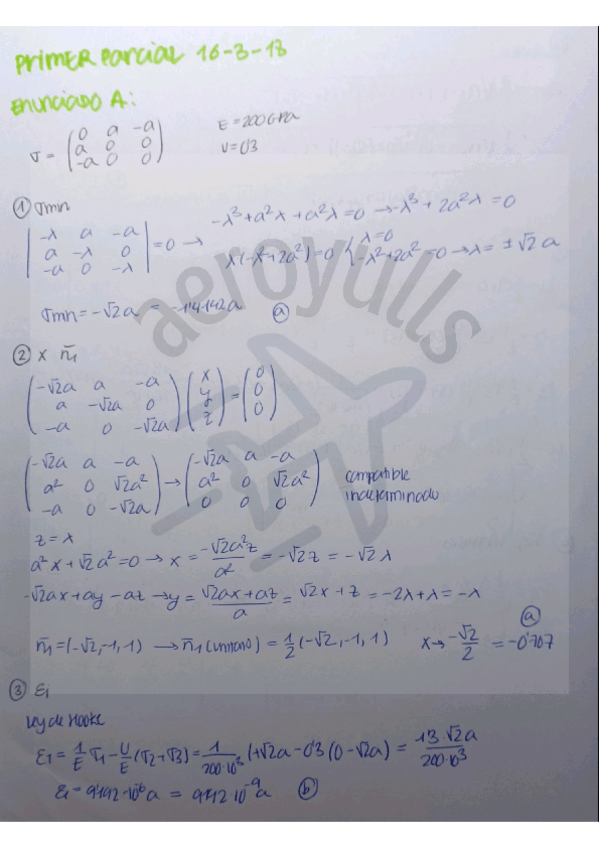 PRIMER PARCIAL 16-3-18
ENUNCIADO A:
σ = (0 a -a / a 0 0 / -a 0 0) E = 200 GPa
ν = 0'3
① σmn
|-λ a -a / a -λ 0 / -a 0 -λ| = 0 → -λ³ + a²λ + a²λ = 0 → -λ³ + 2a²λ = 0
λ(-λ² + 2a²) = 0 { λ = 0 / -λ² + 2a² = 0 → λ = ±√2 a
σmn = -√2 a = -1'4142a ⓐ
② x n̄₁
(-√2a a -a / a -√2a 0 / -a 0 -√2a) (x / y / z) = (0 / 0 / 0)
(-√2a a -a / a² 0 √2a² / -a 0 -√2a) → (-√2a a -a / a² 0 √2a² / 0 0 0) compatible indeterminado
z = λ
a²x + √2a² = 0 → x = -√2a²z / a² = -√2z = -√2λ
-√2ax + ay - az → y = (√2ax + az) / a = √2x + z = -2λ + λ = -λ
n̄₁ = (-√2, -1, 1) → n̄₁ (unitario) = 1/2 (-√2, -1, 1) x → -√2/2 = -0'707 ⓐ
③ εi
Ley de Hooke
ε₁ = 1/E σ₁ - ν/E (σ₂ + σ₃) = 1/(200·10³) (+√2a - 0'3 (0 - √2a) = 1'3·√2a / (200·10³)
ε₁ = 9'192·10⁻⁶a = 9'192·10⁻⁹a ⓑ
aeroyulls